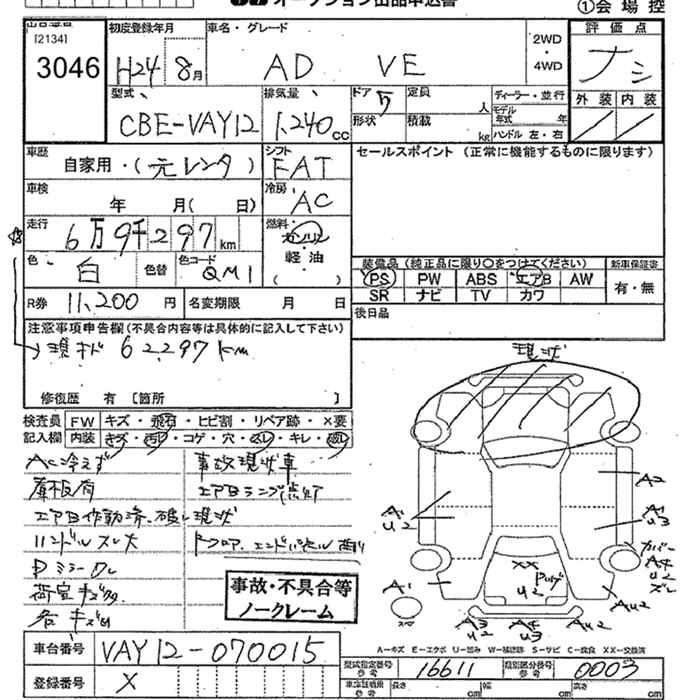 オークション出品申込書
①会場控
出品番号
[2134]
3046
初度登録年月
H24 8月
車名・グレード
AD VE
2WD
・
4WD
評価点
ナシ
外装 内装
型式
CBE-VAY12
排気量
1,240cc
ドア 5
形状
定員 人
積載 kg
ディーラー・並行
モデル年式 年
ハンドル 左・右
車歴
自家用・(元レンタ)
シフト
FAT
セールスポイント (正常に機能するものに限ります)
車検 年 月( 日)
冷房
AC
走行
6万9千297km
燃料
ガソリン
軽油
( )
色 白
色替
色コード QM1
装備品(純正品に限り○をつけてください)
新車保証書
PS PW ABS エアB AW
有・無
SR ナビ TV カワ
R券 11,200円
名変期限 月 日
後日品
注意事項申告欄(不具合内容等は具体的に記入して下さい)
現オド 62297km
修復歴 有 [箇所 ]
現状
検査員記入欄
FW キズ・飛石・ヒビ割・リペア跡・×要
内装 キズ・汚レ・コゲ・穴・ヌレ・キレ
AC冷えず
事故現状車
エアBランプ点灯
エアB作動済
現状
荷室キズ
事故・不具合等
ノークレーム
A2
A1
U2
A1
U3
カバー
A4
U2
ズレ
A1
XX
U2
A3
U2
A4
U3
AU2
AU2
A-キズ E-エクボ U-凹み W-補修跡 S-サビ C-腐食 XX-交換済
車台番号 VAY12-070015
登録番号 X
型式指定番号 参考 16611
類別区分番号 参考 0003
車庫証明 参考 長さ cm 幅 cm 高さ cm